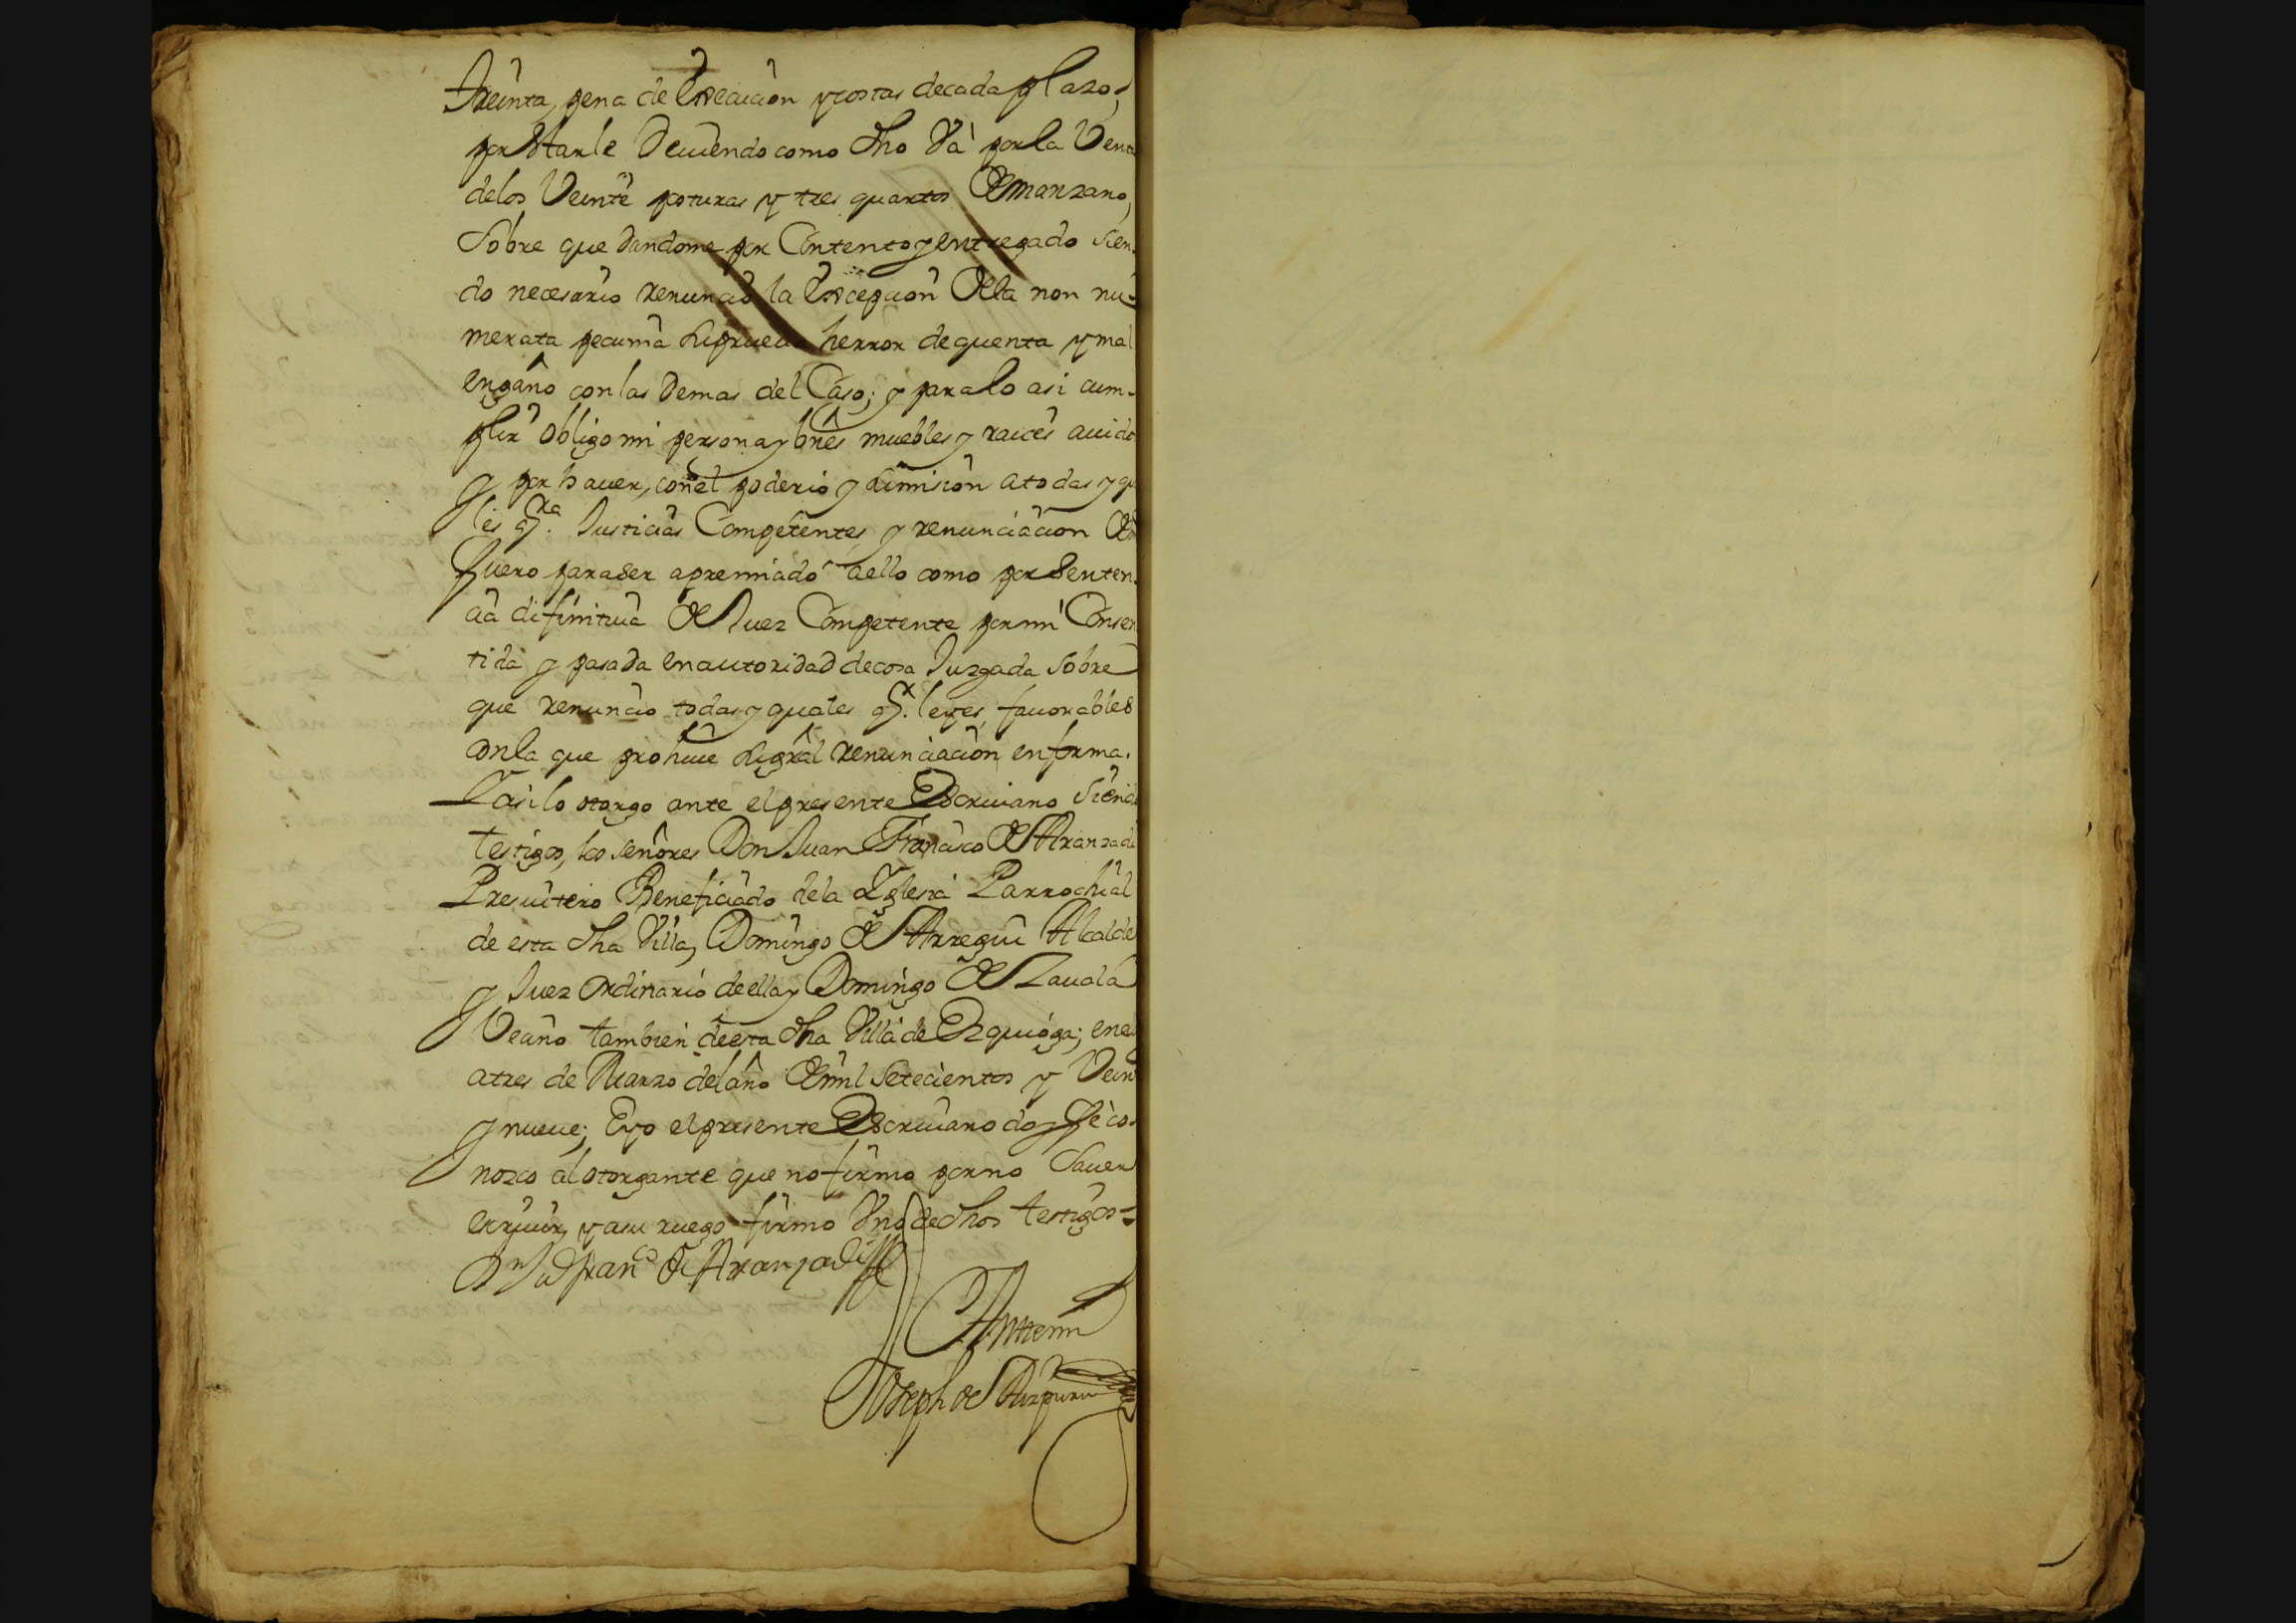 treinta, pena de execucion y costas de cada plazo,
por estarle deviendo como dho va por la venta
de los veinte posturas y tres quartos de manzano,
sobre que dandome por contento y entregado sien-
do necesario renuncio la excepcion de la non nu-
merata pecunia su prueva herror de quenta y mal
engaño con las demas del caso; y para lo asi cum-
plir obligo mi persona y bnes muebles y raices avidos
y por haver, con el poderio y sumision a todas y qu
les qra. Justicias Competentes y renunciacion de
fuero para ser apremiado a ello como por senten-
cia difinitiva de Juez Competente por mi Consen
tida y pasada en autoridad de cosa Juzgada sobre
que renuncio todas y quales qr. leyes favorables
con la que prohive la gral renunciacion en forma.
Y asi lo otorgo ante el presente Escrivano siendo
testigos, los señores Don Juan Francisco de Aranzadi
Presvitero Beneficiado de la Yglesia Parrochial
de esta dha Villa, Domingo de Arregui Alcalde
y Juez ordinario de ella y Domingo de Zavala
Vecino tambien de esta dha Villa de Ezquioga; en e
a tres de Marzo del año de mil setecientos y vein
y nueve; E yo el presente Escrivano doy fe co-
nozco al otorgante que no firmo por no saver
escrivir, y a su ruego firmo uno de dhos testigos=
Dn Ju Franco de Aranzadi
Ante mi
Joseph de Aizpuru